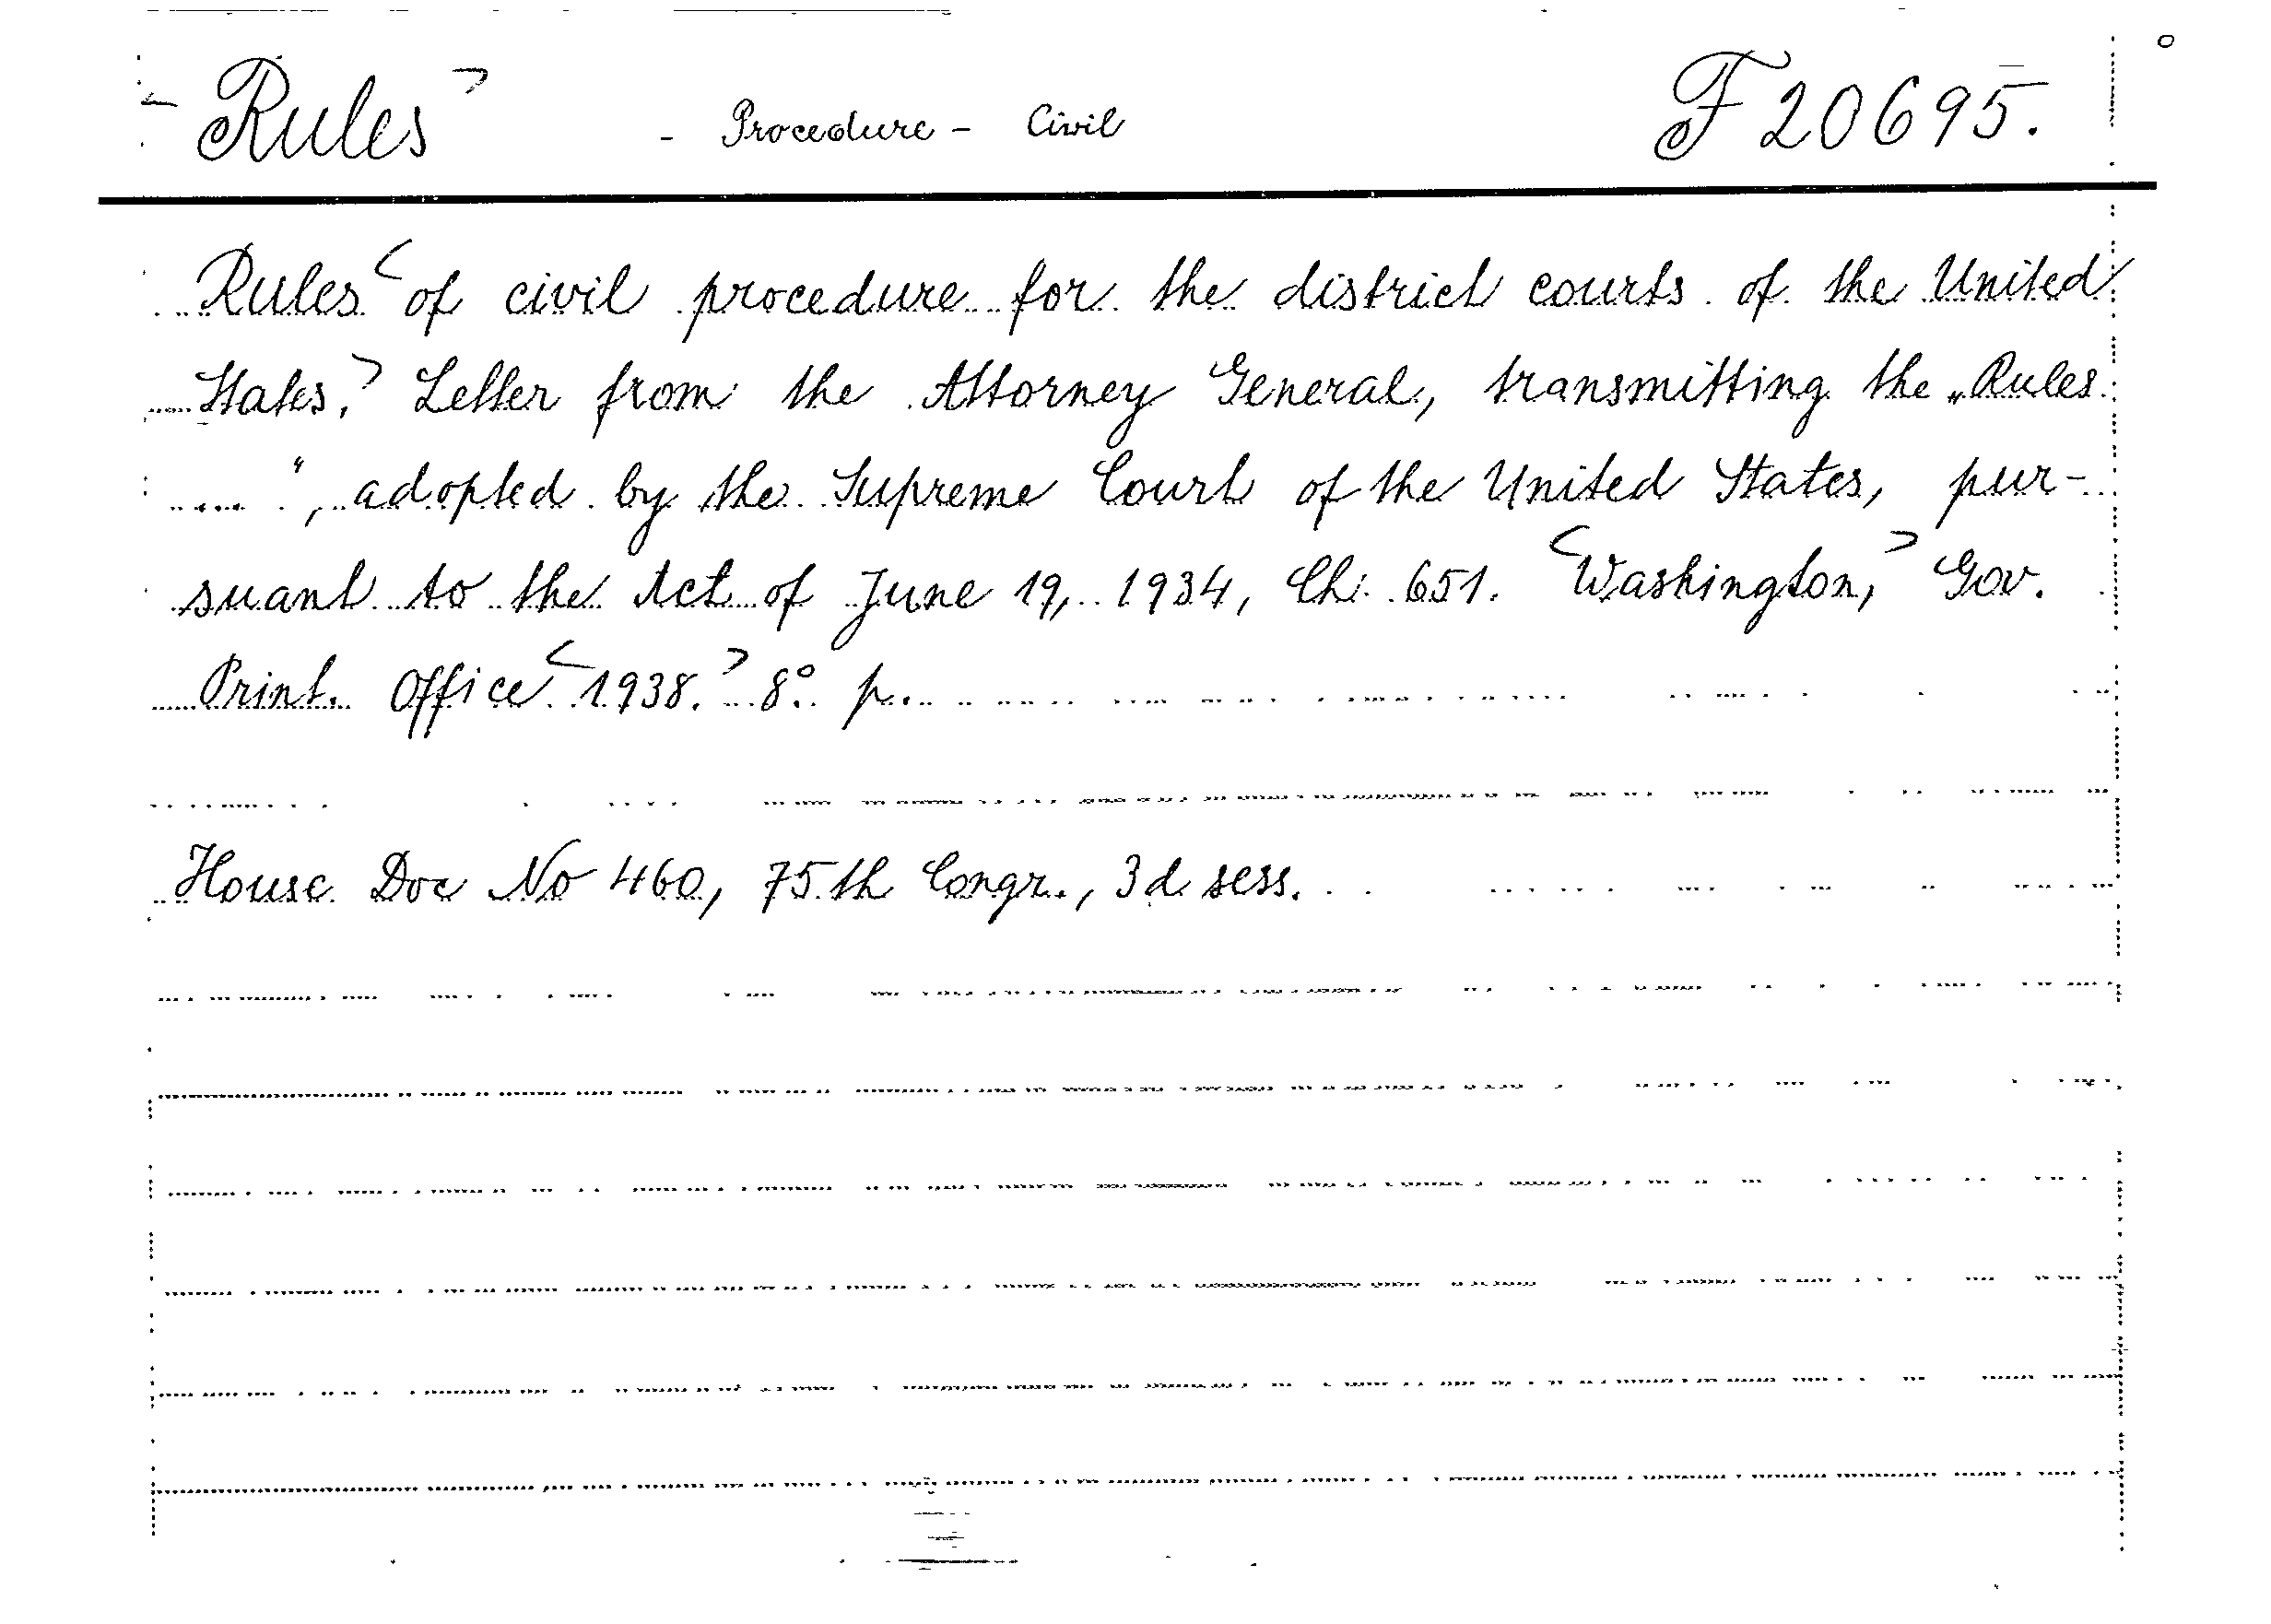 Rules - Procedure - Civil F 20695.
Rules of civil procedure for the district courts of the United
States. Letter from the Attorney General, transmitting the „Rules
.... “, adopted by the Supreme Court of the United States, pur-
suant to the Act of June 19, 1934, Ch. 651. Washington, Gov.
Print. Office 1938. 8° p.
House Doc No 460, 75th Congr., 3d sess.